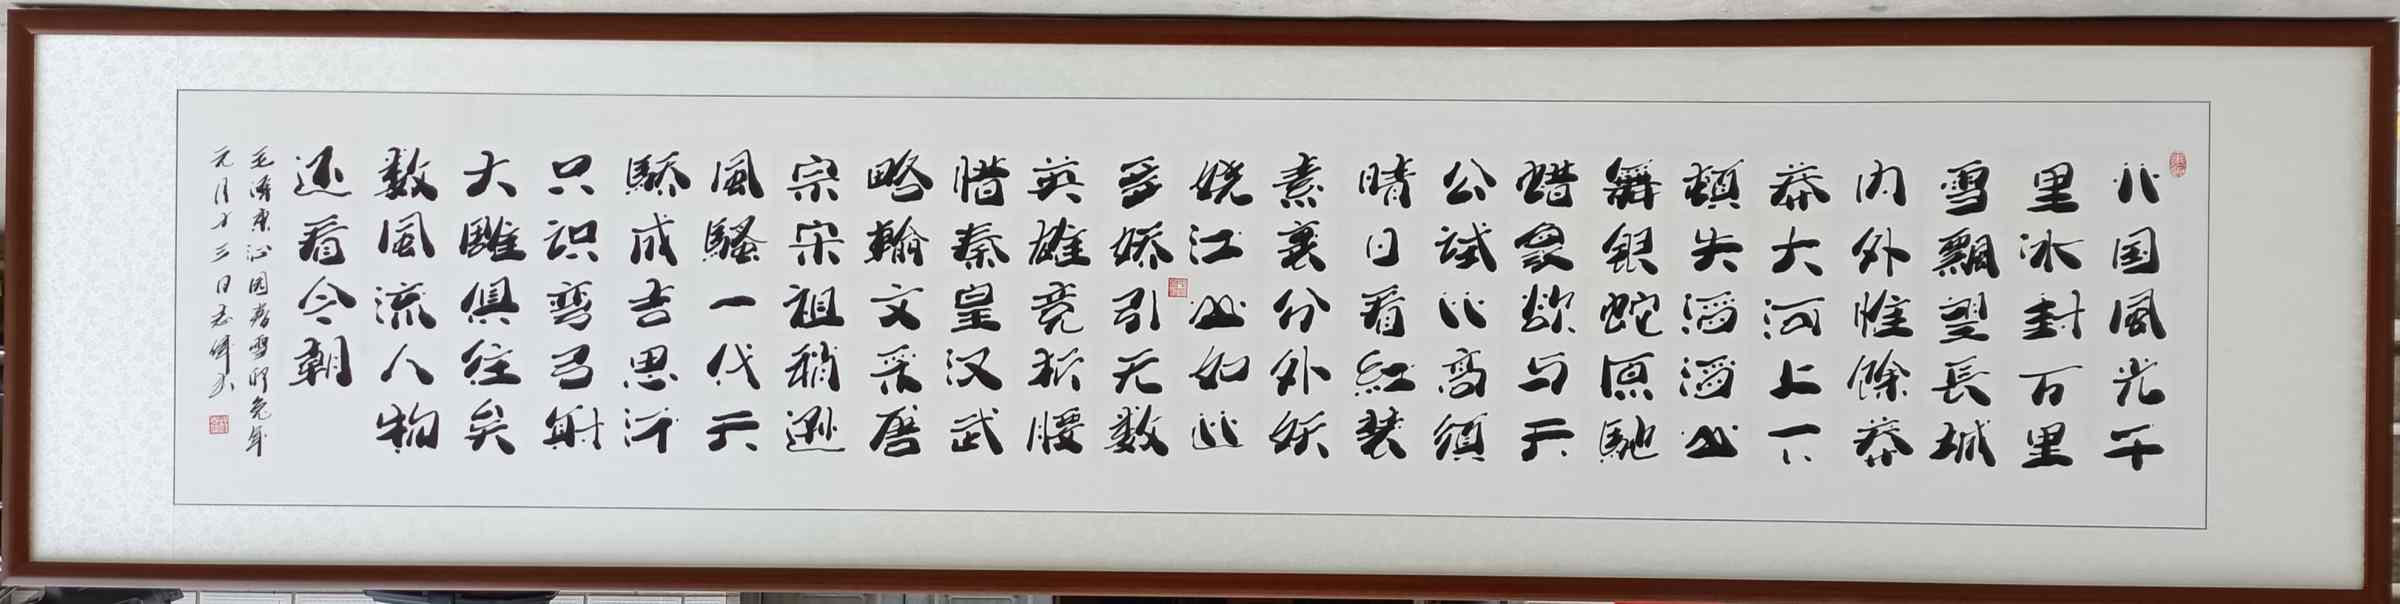 北国風光千
里冰封万里
雪飄望長城
内外惟餘莽
莽大河上下
頓失滔滔山
舞銀蛇原馳
蜡象欲与天
公試比高須
晴日看紅装
素裹分外妖
娆江山如此
多娇引无数
英雄竞折腰
惜秦皇汉武
略輸文采唐
宗宋祖稍遜
風騷一代天
驕成吉思汗
只识弯弓射
大雕俱往矣
数風流人物
还看今朝
毛泽東沁园春雪卯兔年
元月十三日志偉书